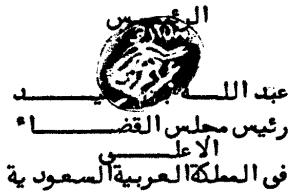 الرئيس
عبد اللـــه
رئيس مجلس القضـــاء
الاعلـــى
في المملكة العربية السعودية